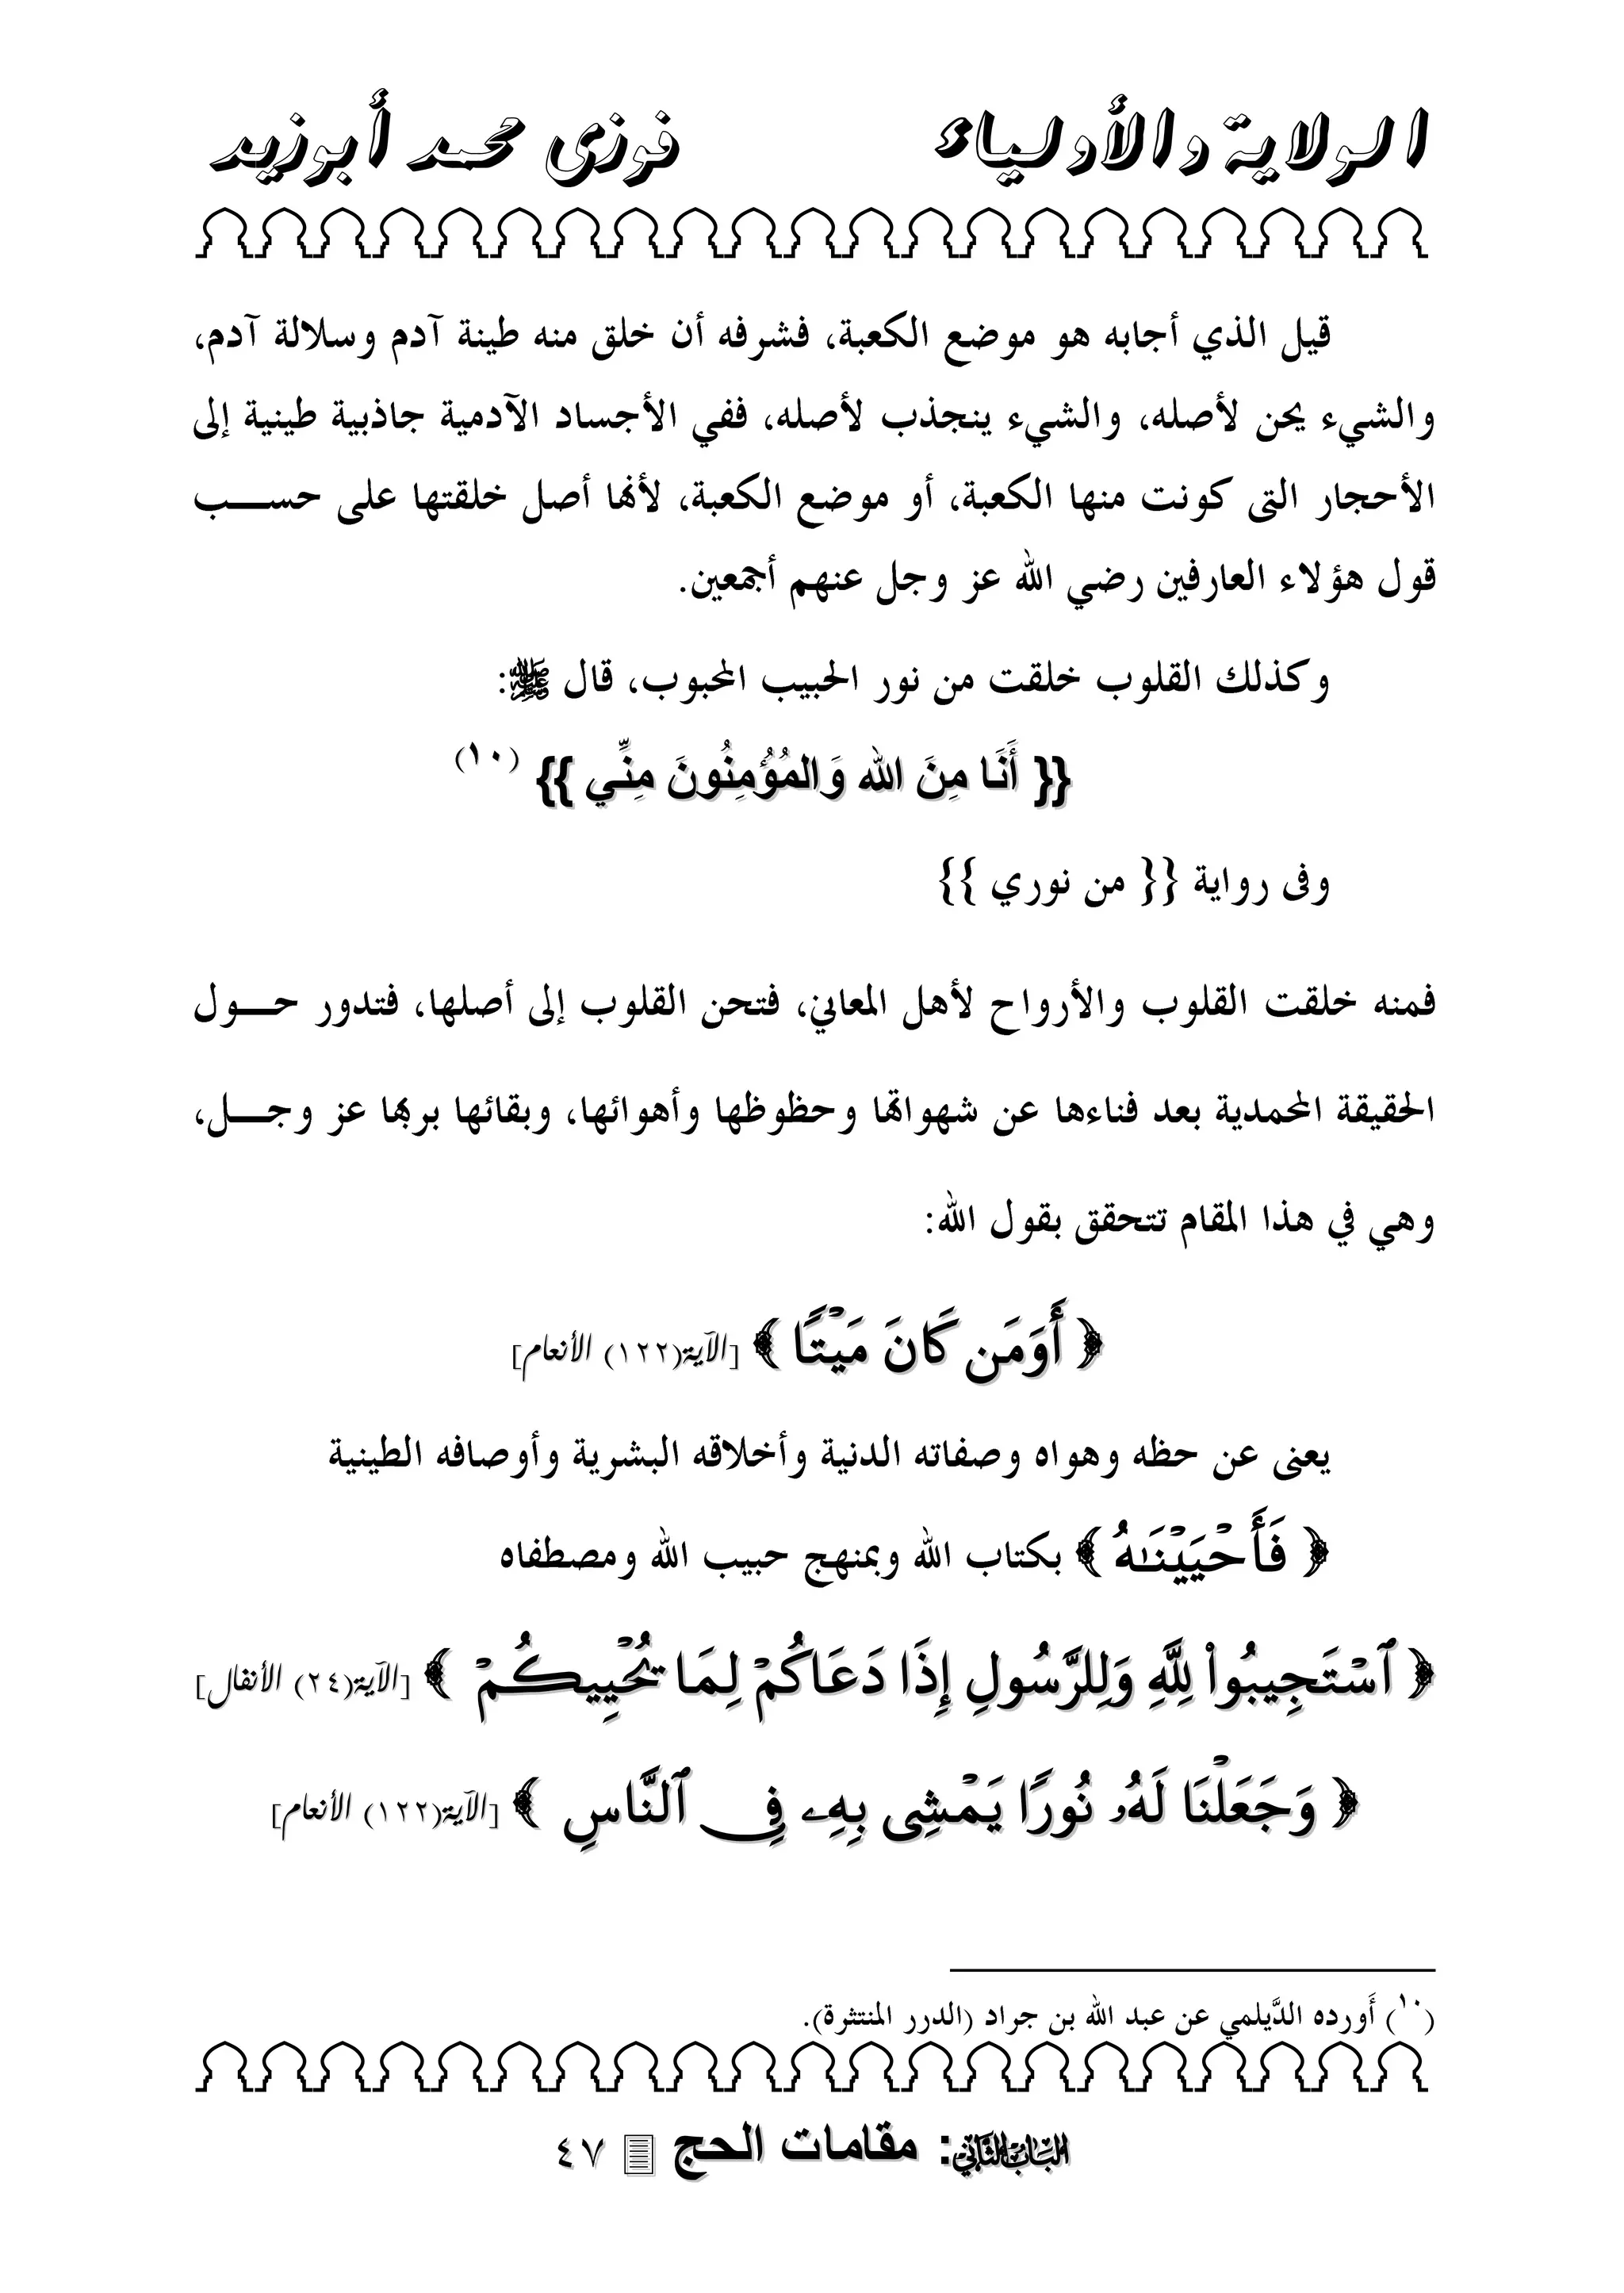 الولاية والأولياء فوزى محمد أبوزيد
قيل الذي أجابه هو موضع الكعبة، فشرفه أن خلق منه طينة آدم وسلالة آدم،
والشيء يحن لأصله، والشيء ينجذب لأصله، ففي الأجساد الآدمية جاذبية طينية إلى
الأحجار التى كونت منها الكعبة، أو موضع الكعبة، لأنها أصل خلقتها على حســـب
قول هؤلاء العارفين رضي الله عز وجل عنهم أجمعين.
وكذلك القلوب خلقت من نور الحبيب المحبوب، قال ﷺ:
{{ أَنَا مِنَ الله وَالمُؤْمِنُونَ مِنِّي }} (١٠)
وفى رواية {{ من نوري }}
فمنه خلقت القلوب والأرواح لأهل المعاني، فتحن القلوب إلى أصلها، فتدور حـــول
الحقيقة المحمدية بعد فناءها عن شهواتها وحظوظها وأهوائها، وبقائها بربها عز وجـــل،
وهي في هذا المقام تتحقق بقول الله:
﴿ أَوَمَن كَانَ مَيْتًا ﴾ [الآية(١٢٢) الأنعام]
يعنى عن حظه وهواه وصفاته الدنية وأخلاقه البشرية وأوصافه الطينية
﴿ فَأَحْيَيْنَـٰهُ ﴾ بكتاب الله وبمنهج حبيب الله ومصطفاه
﴿ ٱسْتَجِيبُوا۟ لِلَّهِ وَلِلرَّسُولِ إِذَا دَعَاكُمْ لِمَا تُحْيِيكُمْ ﴾ [الآية(٢٤) الأنفال]
﴿ وَجَعَلْنَا لَهُۥ نُورًا يَمْشِى بِهِۦ فِى ٱلنَّاسِ ﴾ [الآية(١٢٢) الأنعام]
(١٠) أَورده الدَّيلمي عن عبد الله بن جراد (الدرر المنتثرة).
الباب الثاني: مقامات الحج ٤٧